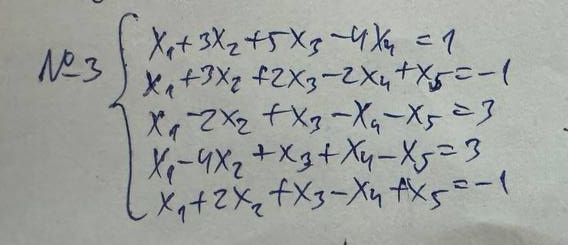 №3
x₁+3x₂+5x₃-4x₄=1
x₁+3x₂+2x₃-2x₄+x₅=-1
x₁-2x₂+x₃-x₄-x₅=3
x₁-4x₂+x₃+x₄-x₅=3
x₁+2x₂+x₃-x₄+x₅=-1